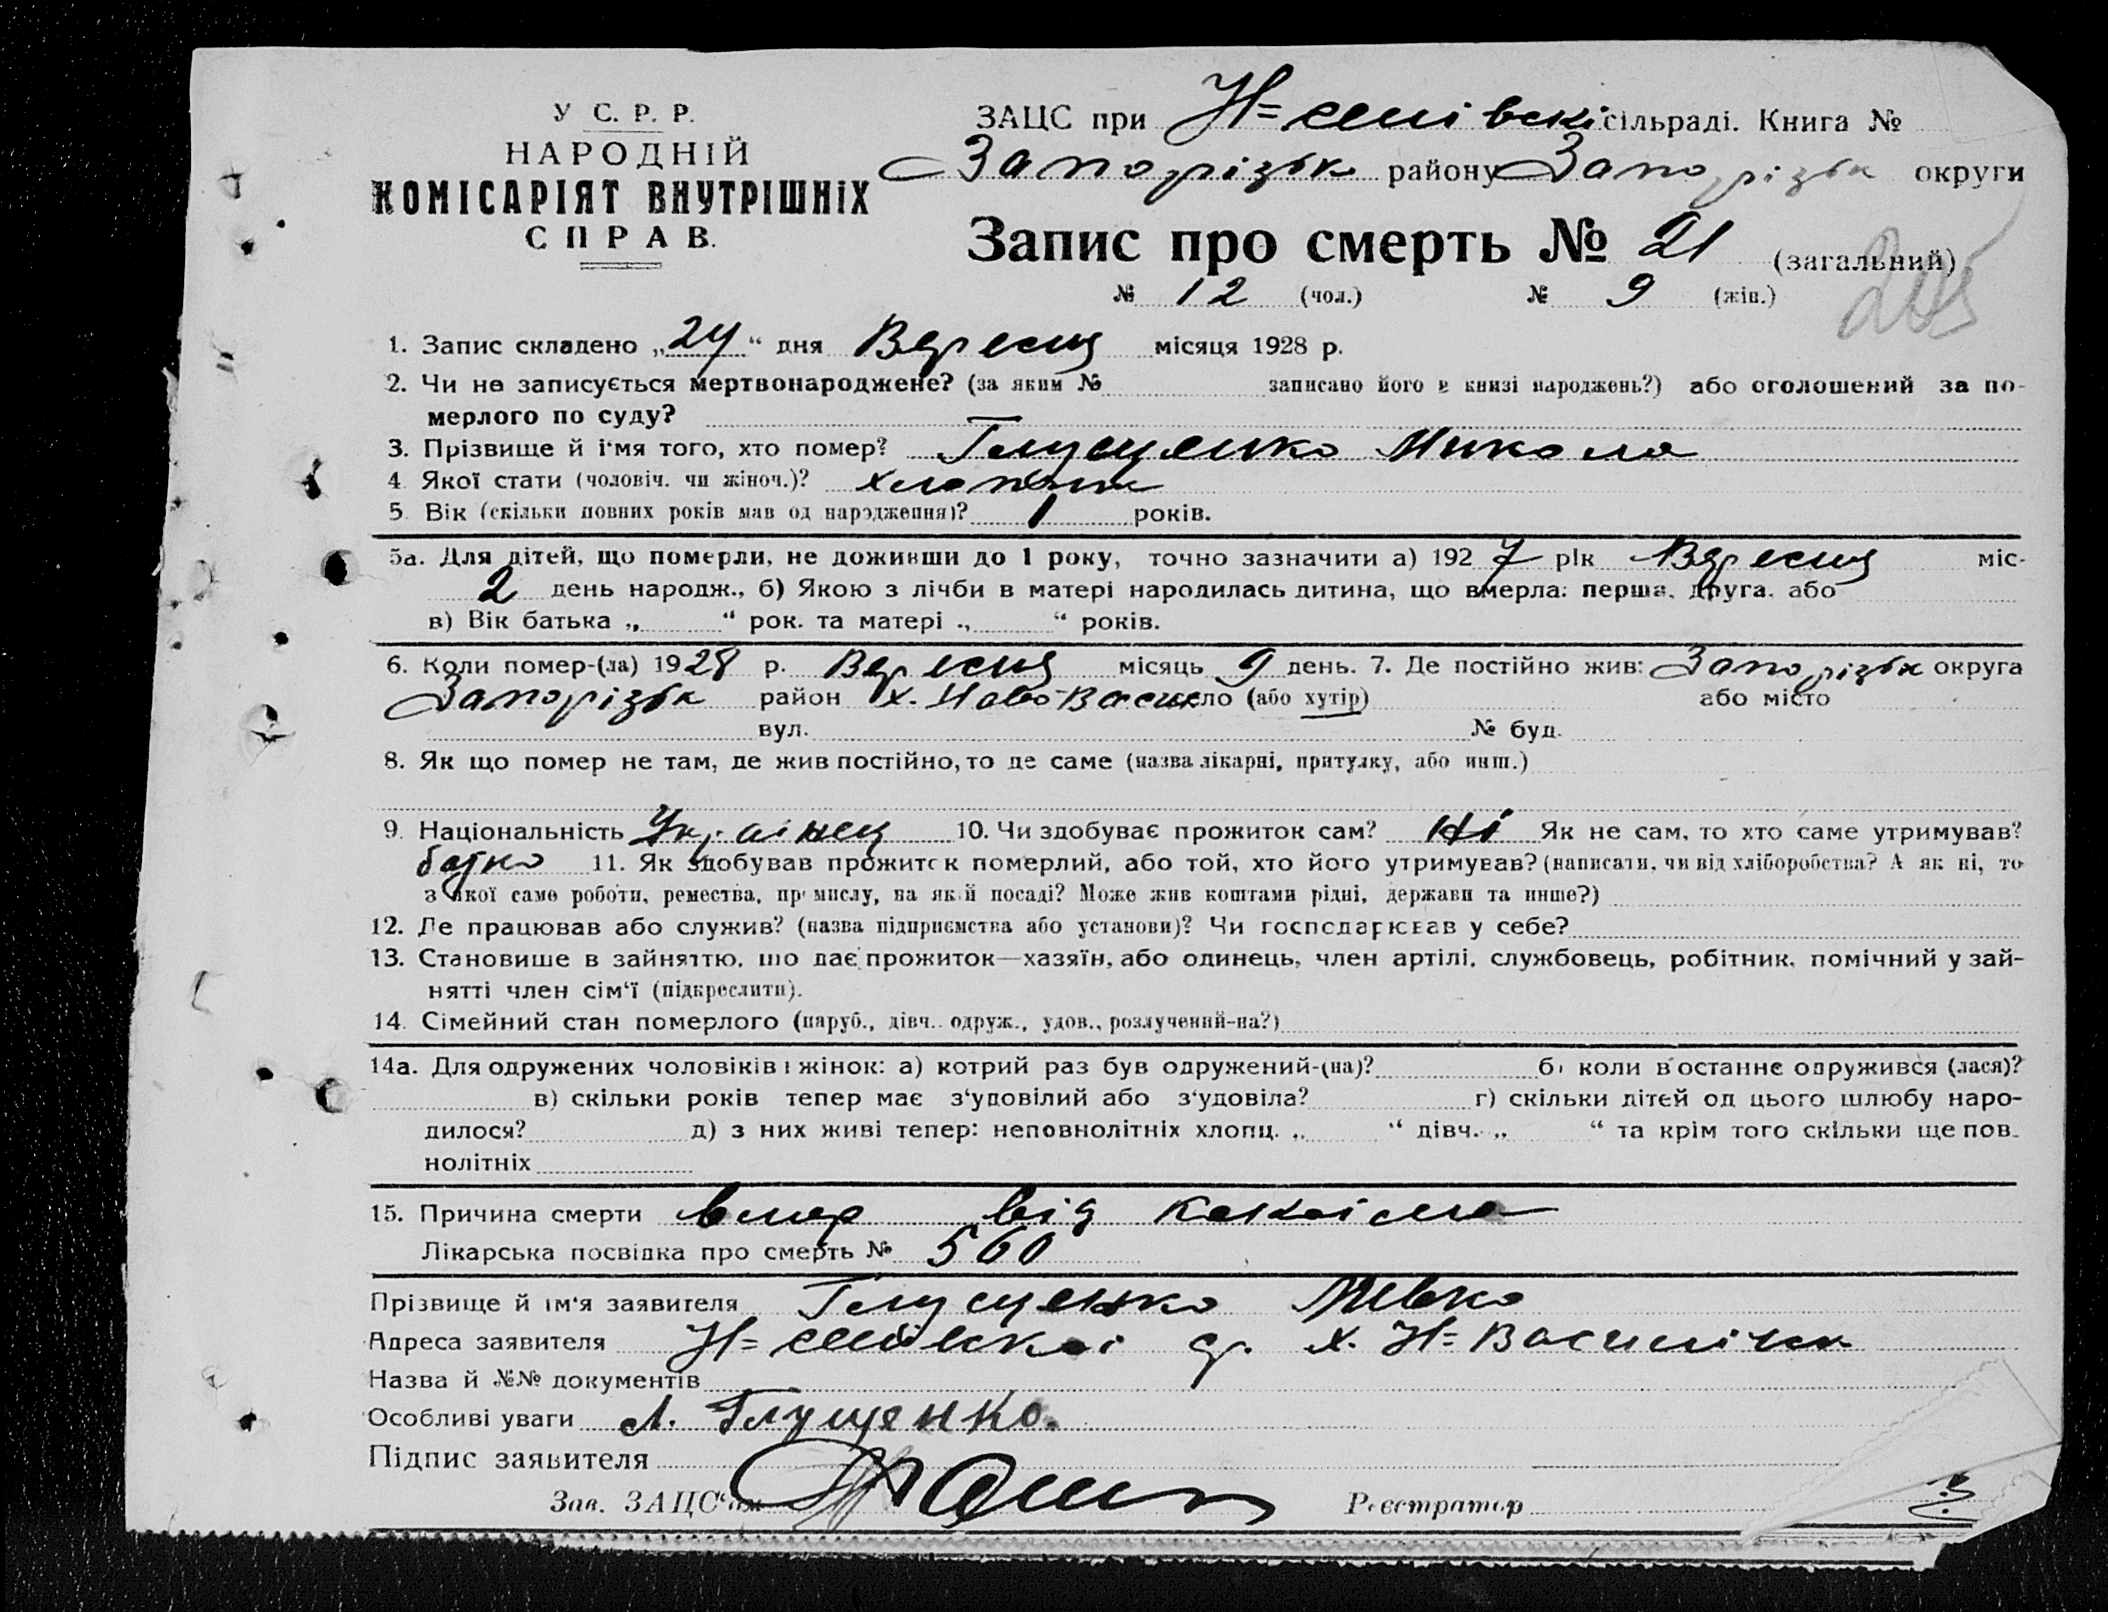 У С. Р. Р.
НАРОДНІЙ
КОМІСАРІЯТ ВНУТРІШНІХ
СПРАВ.
ЗАЦС при сільраді. Книга №
Запорізьк району Запорізьк округи
Запис про смерть № 21 (загальний)
205
№ 12 (чол.) № 9 (жін.)
1. Запис складено „24“ дня Вересня місяця 1928 р.
2. Чи не записується мертвонароджене? (за яким № записано його в книзі народжень?) або оголошений за по-
мерлого по суду?
3. Прізвище й і‘мя того, хто помер? Глущенко Микола
4. Якої стати (чоловіч. чи жіноч.)?
5. Вік (скільки повних років мав од народження)? 1 років.
5а. Для дітей, що померли, не доживши до 1 року, точно зазначити а) 1927 рік Вересня міс-
2 день народж., б) Якою з лічби в матері народилась дитина, що вмерла: перша, друга, або
в) Вік батька „ “ рок. та матері „ “ років.
6. Коли помер-(ла) 1928 р. Вересня місяць 9 день. 7. Де постійно жив: Запорізьк округа
Запорізьк район х. Ново-Васил село (або хутір) або місто
вул. № буд.
8. Як що помер не там, де жив постійно, то де саме (назва лікарні, притулку, або инш.)
9. Національність Українец 10. Чи здобуває прожиток сам? Ні Як не сам, то хто саме утримував?
батко 11. Як здобував прожиток померлий, або той, хто його утримував? (написати, чи від хліборобства? А як ні, то
з якої саме роботи, ремества, промислу, на якій посаді? Може жив коштами рідні, держави та инше?)
12. Де працював або служив? (назва підприємства або установи)? Чи господарював у себе?
13. Становище в зайняттю, що дає прожиток—хазяїн, або одинець, член артілі, службовець, робітник, помічний у зай-
нятті член сім‘ї (підкреслити).
14. Сімейний стан померлого (паруб., дівч., одруж., удов., розлучений-на?)
14а. Для одружених чоловіків і жінок: а) котрий раз був одружений-(на)? б) коли в останнє одружився (лася)?
в) скільки років тепер має з‘удовілий або з‘удовіла? г) скільки дітей од цього шлюбу наро-
дилося? д) з них живі тепер: неповнолітніх хлопц. „ “ дівч. „ “ та крім того скільки ще пов-
нолітніх
15. Причина смерти вмер від
Лікарська посвідка про смерть № 560
Прізвище й ім‘я заявителя Глущенко Левко
Адреса заявителя х. Н=Василівка
Назва й №№ документів
Особливі уваги Л. Глущенко.
Підпис заявителя
Зав. ЗАЦС‘ом Реєстратор